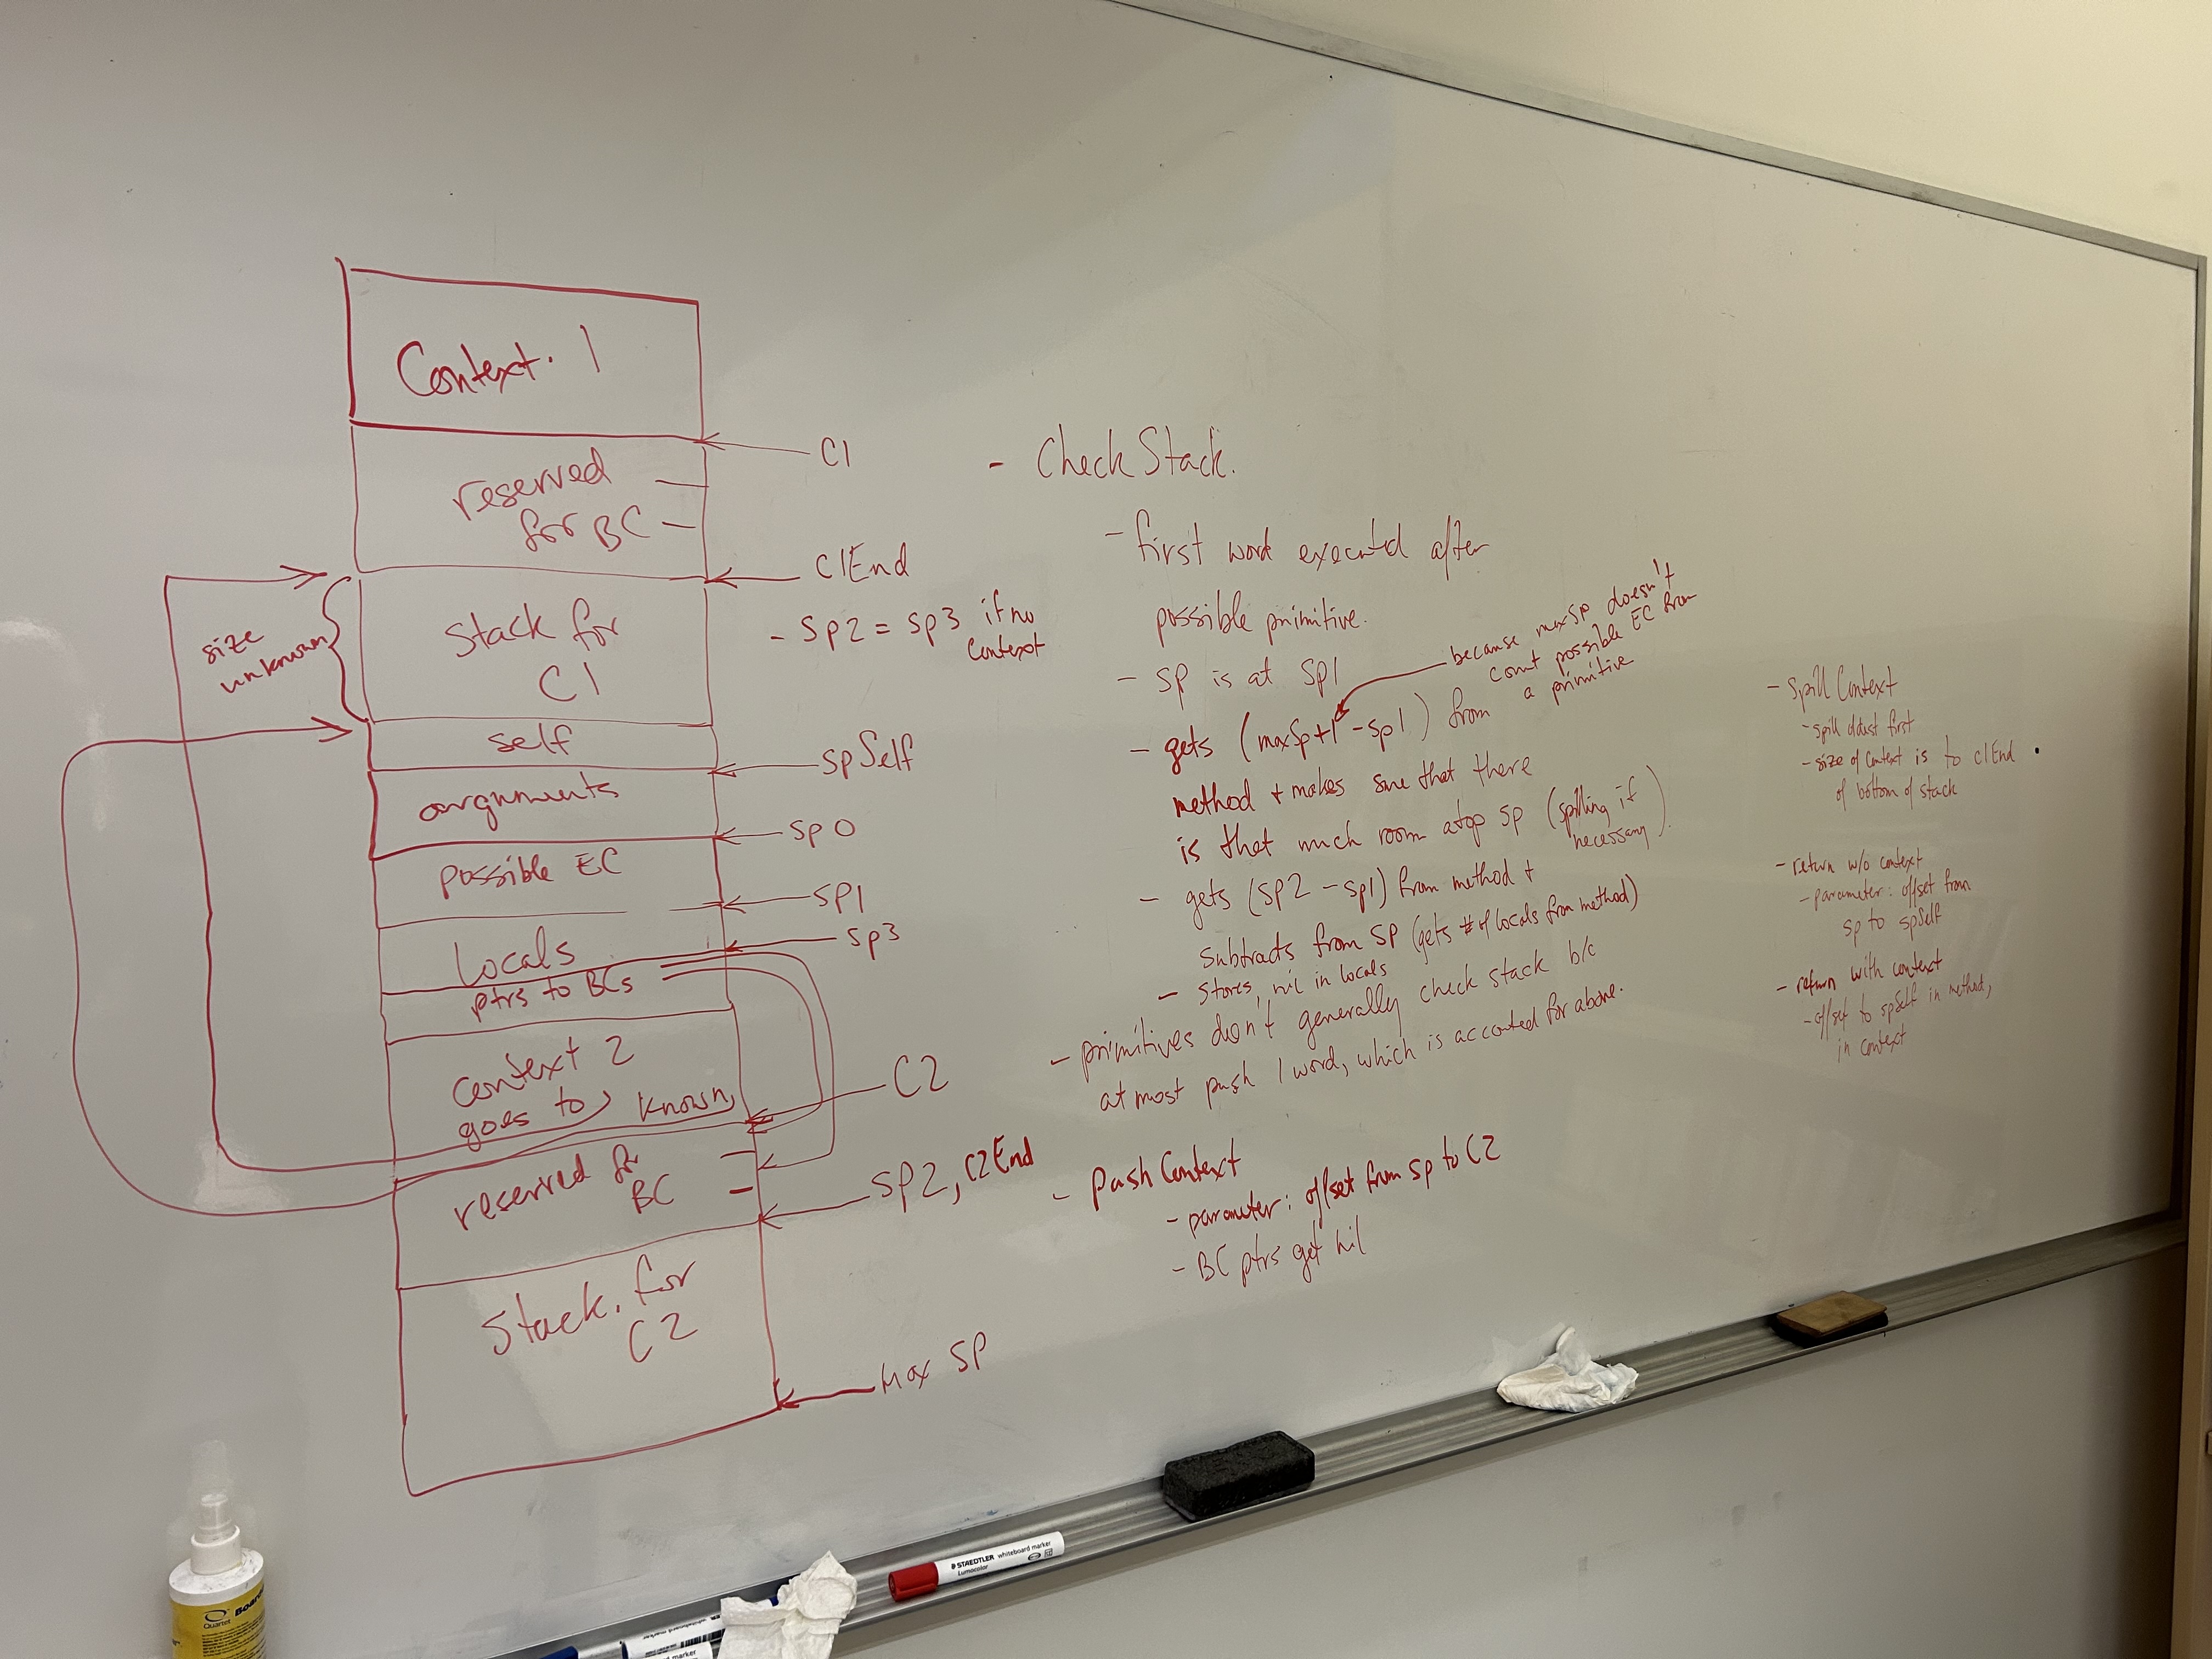 Context. 1
C1
reserved
for BC
C1End
size
unknown
Stack for
C1
- Sp2 = sp3 if no
Context
self
spSelf
arguments
sp0
possible EC
sp1
sp3
Locals
ptrs to BCs
Context 2
goes to
known
C2
reserved for
BC
SP2, C2End
Stack. for
C2
Max SP
- Check Stack.
- first word executed after
possible primitive.
- SP is at SP1
because maxSp doesn't
count possible EC from
a primitive
- gets (maxSp+1 - Sp1) from
method + makes sure that there
is that much room atop sp (spilling if
necessary).
- gets (SP2 - SP1) from method +
Subtracts from SP (gets # of locals from method)
- Stores nil in locals
- primitives don't generally check stack b/c
at most push 1 word, which is accounted for above.
- Push Context
- parameter: offset from SP to C2
- BC ptrs get nil
- Spill Context
- spill oldest first
- size of context is to C1End
of bottom of stack
- return w/o context
- parameter: offset from
sp to spSelf
- return with context
- offset to spSelf in method,
in context
STAEDTLER whiteboard marker
Lumocolor
Quartet